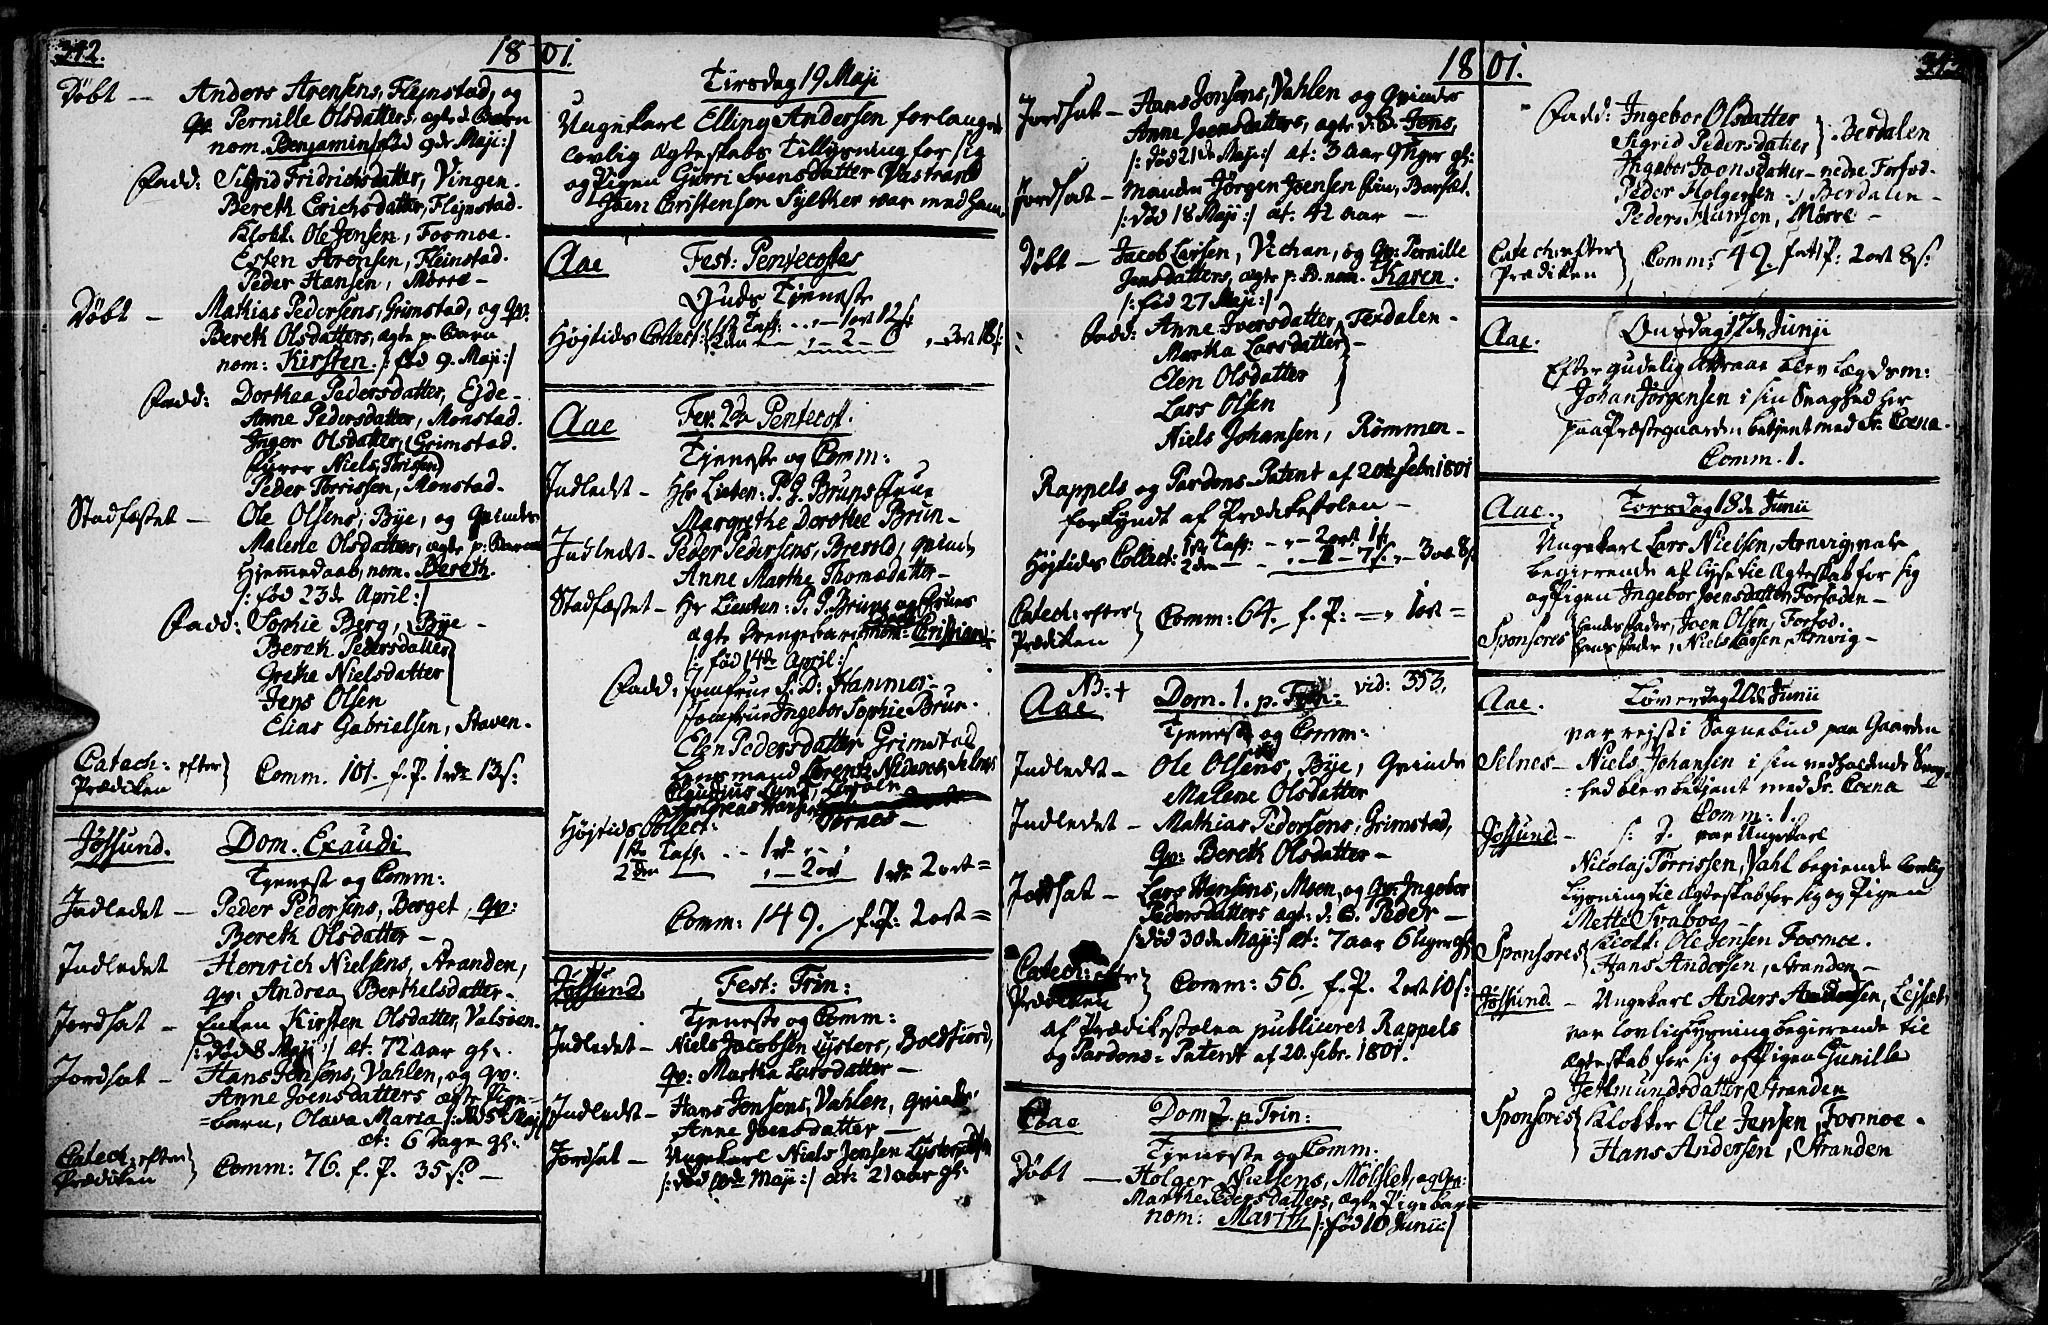 342.
1801.
Døbt — Anders Arensens, Flejnstad, og
qv. Pernille Olsdatters, ægte d. Barn
nom. Benjamin /: fød 9de Maji :/
Fadd: Sigrid Fridrichsdatter, Vingen.
Bereth Erichsdatter, Flejnstad.
Klokk. Ole Jensen, Fosmoe.
Esten Arensen, Flejnstad.
Peder Hansen, Mørre —
Døbt — Mathias Pedersens, Grimstad, og Qv:
Bereth Olsdatters, ægte p. Barn
nom: Kirsten. /: fød 9. Maji :/
Fadd: Dorthea Pedersdatter, Ejde —
Anne Pedersdatter, Monstad.
Inger Olsdatter, Grimstad.
Niels Torrissen
Peder Torrissen, Monstad.
Stadfæstet — Ole Olsens, Bye, og Qvindes
Malene Olsdatters, ægte p: Barns
Hjemmedaab, nom. Bereth.
/: fød 23de April :/
Fadd: Sophie Berg, Bye —
Bereth Pedersdatter
Grethe Nielsdatter
Jens Olsen
Elias Gabrielsen, Staven.
Catech: efter Prædiken } Comm. 101. f. P. 1 rdr 13 s:
Jøssund. Dom. Exaudi
Tjeneste og Comm:
Indledet — Peder Pedersens, Berget, qv:
Bereth Olsdatter —
Indledet Henrich Nielsens, Stranden,
qv: Andrea Berthelsdatter —
Jordsat — Enken Kirsten Olsdatter, Valsøen.
/: død 8 Maji :/ æt: 72 aar gl:
Jordsat — Hans Jensens, Vahlen, og qv:
Anne Joensdatters ægte Pige-
barn, Olava Maria /: død 5te Maji
æt: 6 Dage gl:
Catech: efter Prædiken } Comm: 76. f. P. 35 s: —
Tirsdag 19 Maji
Ungekarl Elling Andersen forlangede
lovlig Ægteskabs Tillysning for sig
og Pigen Gurri Svensdatter Vastrand
Joen Christensen Sylther var med ham.
Aae Fest: Pentecostes
Guds Tjeneste
Højtids Collect: 1ste Tafl. — 1 ort 12 s
2den — 2 — 6 — 3 ort 18 s:
Aae Fer: 2da Pentecost:
Tjeneste og Comm:
Indledet — Hr Lieuten: P. J. Bruns Frue
Margrethe Dorothee Brun —
Indledet — Peder Pedersens, Brevold, qvinde
Anne Marthe Thomædatter —
Stadfæstet — Hr Lieuten: P. J. Bruns og Frues
ægte Drengebarn nom: Cristian —
/: fød 14de April :/
Fadd: Jomfrue S. D: Hammer —
Jomfrue Ingebor Sophie Brun.
Elen Pedersdatter Grimstad
Lensmand Lorentz Niderøe, Selnes
Claudius Lund,
Tornes —
Højtids Collect:
1ste Tafl. — 1 rdr —
2den — — 2 ort 1 rdr 2 ort =
Comm: 149. f. P: 2 ort =
Jøssund. Fest: Trin:
Tjeneste og Comm:
Indledet — Niels Jacobsen Lysters, Boldfiord,
qv: Martha Larsdatter —
Indledet — Hans Jensens, Vahlen, qvinde
Anne Joensdatter —
Jordsat — Ungekarl Niels Jensen
/: død 10de Maji :/ æt: 21 aar gl:
1801.
343
Jordsat — Hans Jensens, Vahlen og Qvindes
Anne Joensdatters, ægte d. B. Jens,
/: død 21de Maji :/ æt: 3 aar 9 Uger gl:
Jordsat — Manden Jørgen Joensen Barset.
/: død 18 Maji :/ æt: 42 aar —
Døbt — Jacob Larsen, Vichan, og Qv: Pernille
Jensdatters, ægte p. B. nom. Karen.
/: fød 27 Maji :/
Fadd: Anne Iversdatter, Terdalen —
Martha Larsdatter —
Elen Olsdatter
Lars Olsen
Niels Johansen, Rømmen —
Rappels og Pardons-Patent af 20de Febr: 1801
forkyndt af Prædikestolen —
Højtids Collect: 1ste Tafl. — 2 ort 1 s
2den — 7 s. — 3 ort 8 s
Catech: efter Prædiken } Comm: 64. f. P: — 1 ort =
Aae NB: + Dom. 1. p. Trin: vid: 353.
Tjeneste og Comm:
Indledt — Ole Olsens, Bye, Qvinde
Malene Olsdatter
Indledet — Mathias Pedersens, Grimstad,
qv: Bereth Olsdatter —
Jordsat — Lars Hansens, Moen, og Qv: Ingebor
Pedersdatters ægt: d. B. Peder —
/: død 30de Maji :/ æt: 7 aar 6 Uger gl:
Catech: efter Prædiken } Comm: 56. f. P. 2 ort 10 s:
af Prædikestolen publiceret Rappels
og Pardons = Patent af 20. febr. 1801.
Aae Dom 2. p Trin:
Tjeneste og Comm:
Døbt — Holger Nielsens, Mølslet, og Qv:
Marthe Pedersdatters, ægte Pigebarn
nom: Marith /: fød 10 Junii :/
Fadd: Ingebor Olsdatter
Sigrid Pedersdatter } Berdalen
Ingebor Joensdatter — nedre Forsod.
Peder Holgersen, Berdalen —
Peder Hansen, Mørre —
Catech: efter Prædiken } Comm: 49. f. P: 2 ort 8 s:
Aae. Onsdag 17de Junii
Efter gudelig Attraae blev Lægdsm:
Johan Jørgensen i sin Svaghed her
paa Præstegaarden betjent med Sr. Coena.
Comm. 1.
Aae. Torsdag 18de Junii
Ungekarl Lars Nielsen, Arnvig, var
begierende at lyse til Ægteskab for sig
og Pigen Ingebor Joensdatter Forsoden —
Sponsores { hendes Fader, Joen Olsen, Forsod.
hans Fader, Niels Larsen, Arnvig —
Aae. Løverdag 20de Junii
var rejst i Sognebud paa Gaarden
Selnes — Niels Johansen i sin vedholdende Svag-
:hed blev betjent med Sr. Coena
Comm: 1.
Jøssund — s: D. var Ungekarl
Nicolaj Torrissen, Vahl begiende lovlig
Lysning til Ægteskab for sig og Pigen
Mette
Sponsores { Klokk: Ole Jensen Fosmoe.
Hans Andersen, Stranden —
Jøssund — Ungekarl Anders Andersen, Lejset,
var lovlig Lysning begierende til
Ægteskab for sig og Pigen Gunille
Jetmundsdatter, Stranden
Sponsores { Klokker Ole Jensen, Fosmoe.
Hans Andersen, Stranden